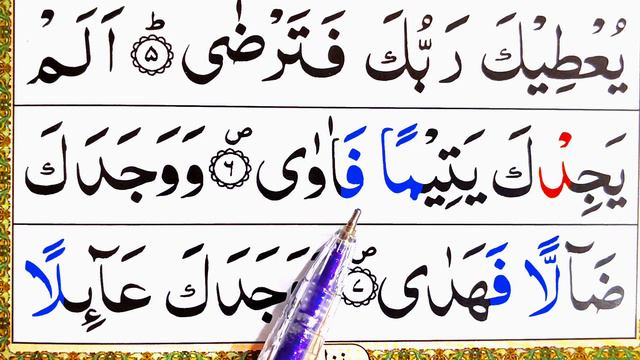 يُعْطِيْكَ رَبُّكَ فَتَرْضٰى ؕ ۝۵ اَلَمْ
يَجِدْكَ يَتِيْمًا فَاٰوٰى ۪ ۝۶ وَوَجَدَكَ
ضَآلًّا فَهَدٰى ۪ ۝۷ وَوَجَدَكَ عَآىِٕلًا